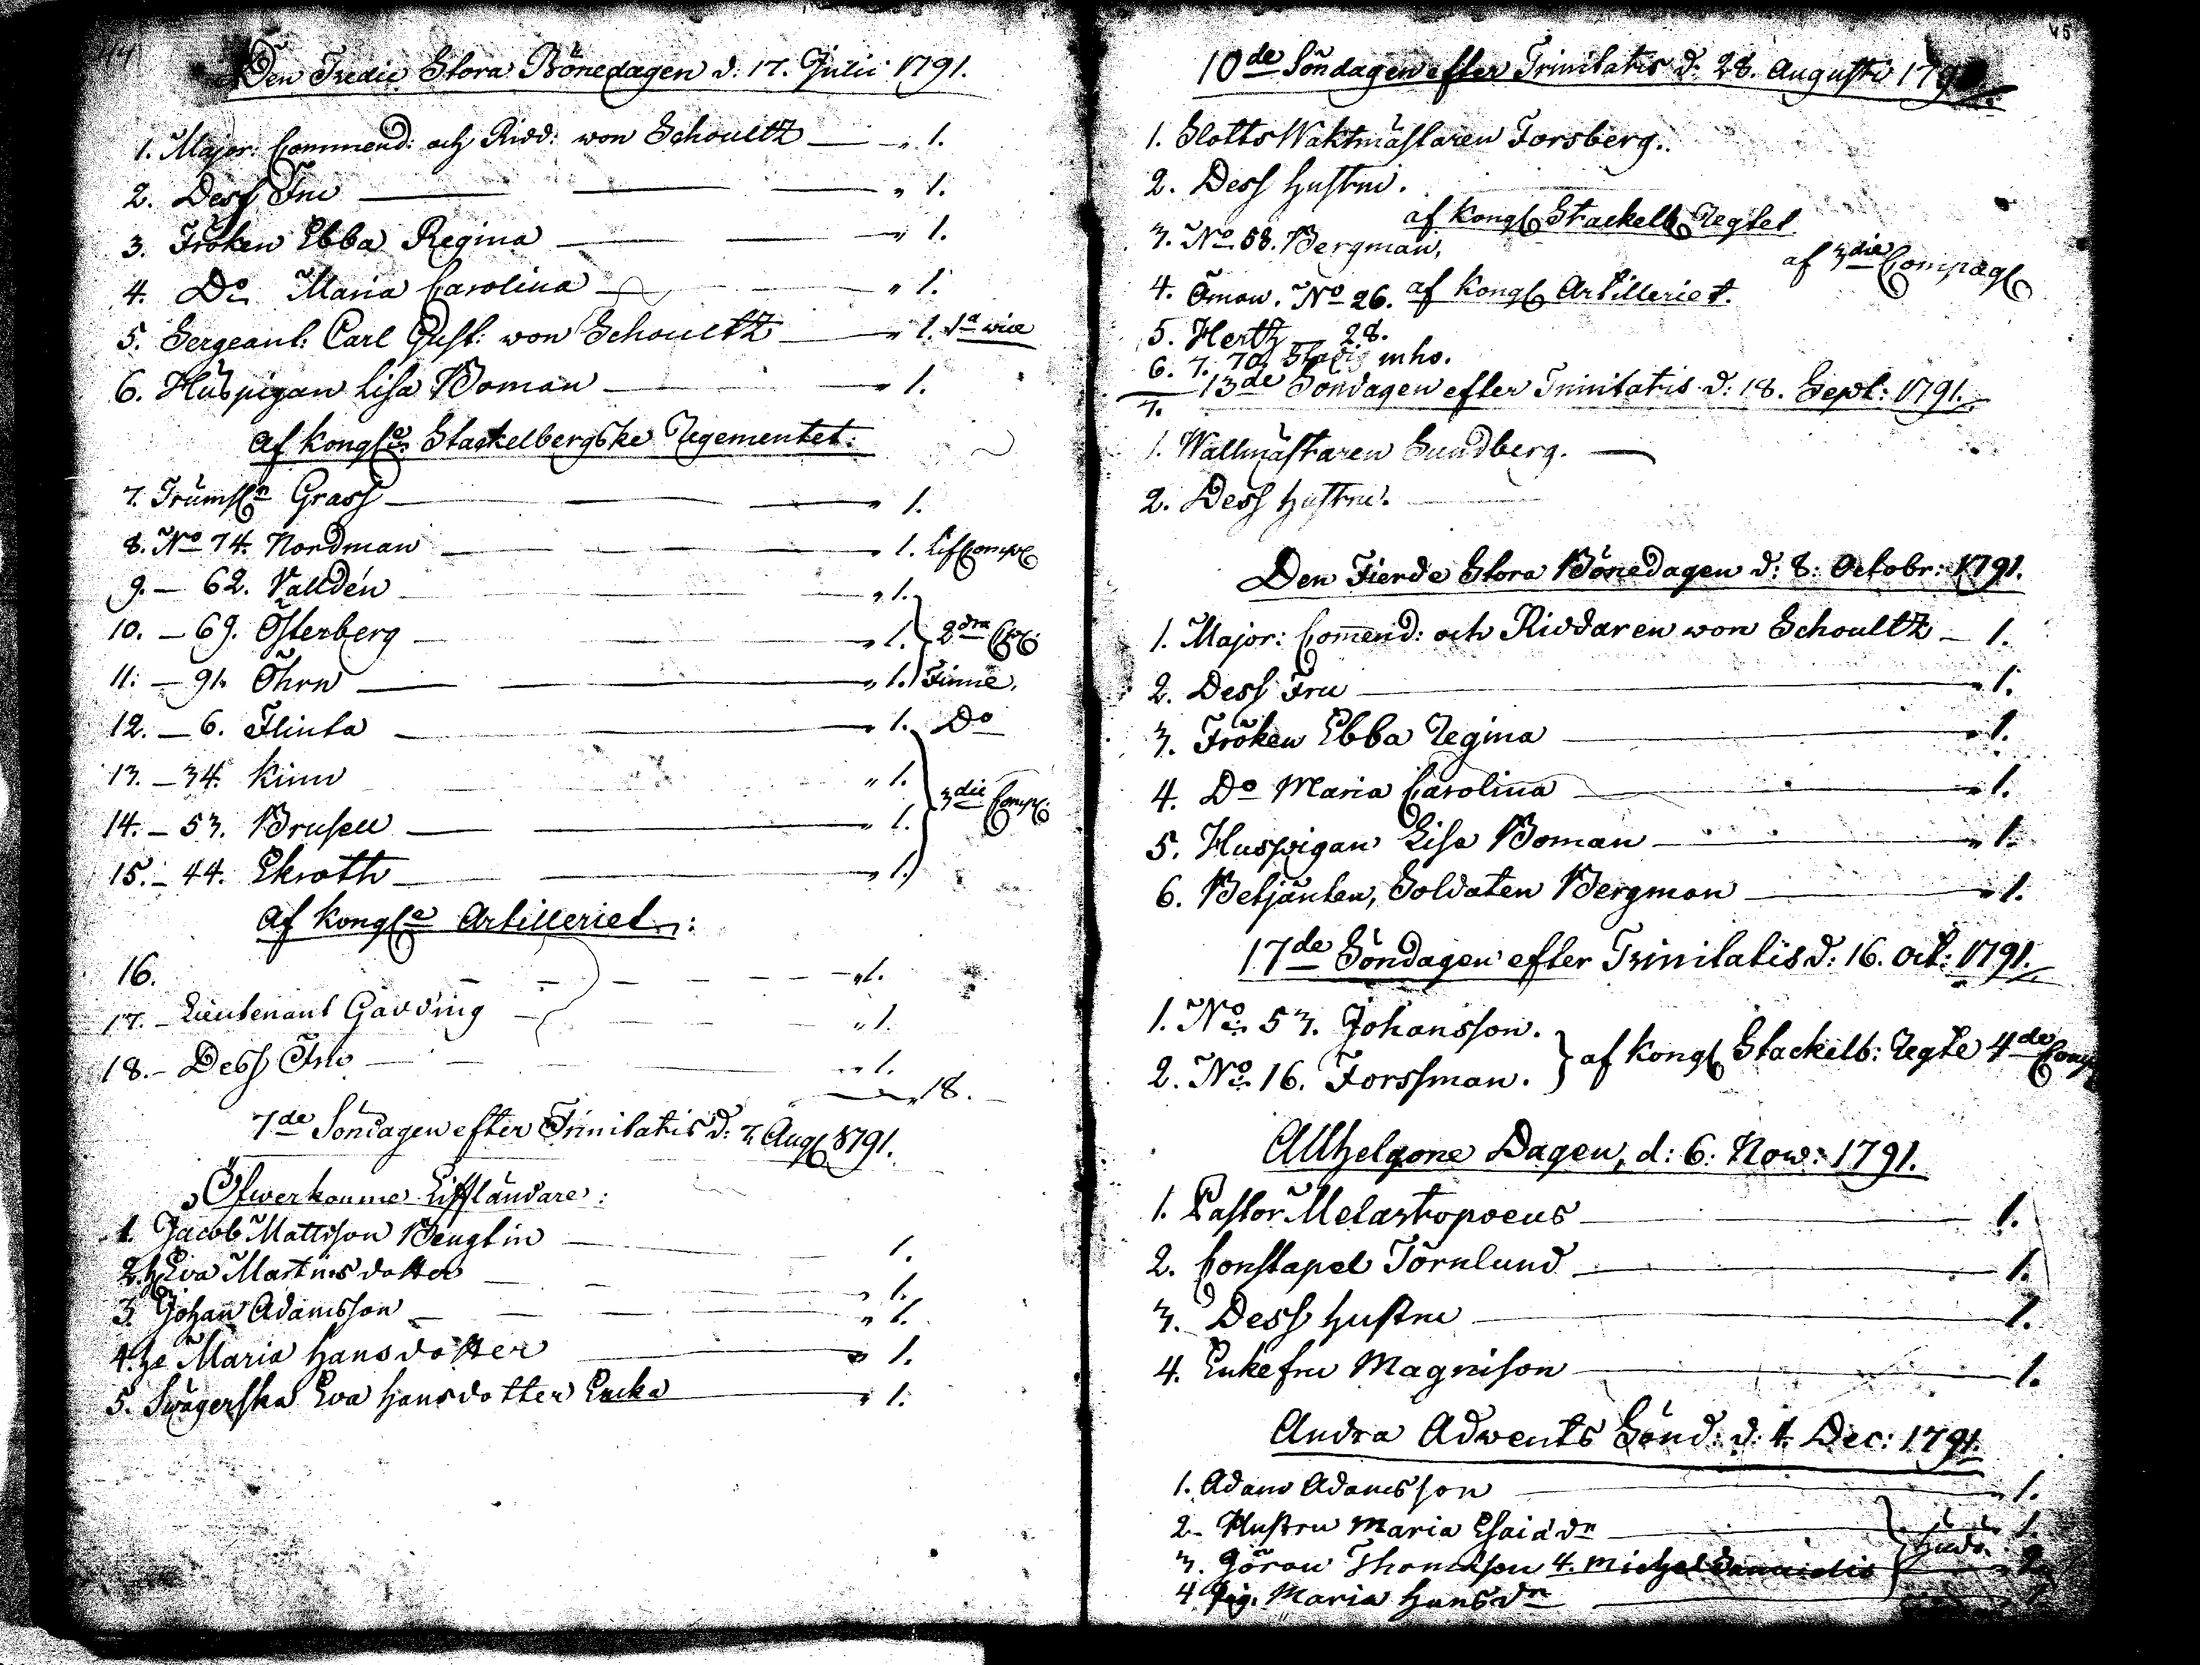 44
Den Tredie Stora Bönedagen d: 17. Julii 1791.
1. Major: Commend: och Ridd: von Schoultz — „ 1.
2. Dess Fru — „ 1.
3. Fröken Ebba Regina — „ 1.
4. Do Maria Carolina — „ 1.
5. Sergeant: Carl Gust: von Schoultz — „ 1. 1a vice
6. Huspigan Lisa Boman — „ 1.
Af Kongl:a Stackelbergske Regementet:
7. Trumsl:n Grass — „ 1.
8. No 74. Nordman — „ 1. LifComp:
9. — 62. Valldén — „ 1.
10. — 69. Österberg — „ 1. 2dra Comp:
11. — 91. Öhrn — „ 1. Finne.
12. — 6. Flinta — „ 1. Do
13. — 34. Kinn „ 1.
14. — 53. Brusell — „ 1. 3die Comp:
15. — 44. Ekroth — „ 1.
Af Kongl:a Artilleriet:
16. — „ 1.
17. — Lieutenant Gadding — „ 1.
18. — Dess Fru — „ 1.
„ 18.
7de Söndagen efter Trinitatis d: 7. Aug: 1791.
Öfwerkomne Liffländare:
1. Jacob Mattsson Benglin — 1.
2. h. Eva Martinsdotter — „ 1.
3. Johan Adamsson — „ 1.
4. h. Maria Hansdotter — „ 1.
5. Swägerska Eva Hansdotter Encka — „ 1.
45
10de Söndagen efter Trinitatis d: 28. Augusti 179
1. SlottsWaktmästaren Forsberg.
2. Dess hustru.
af Kongl Stackelb Regtet
3. No 58. Bergman, af 3die Compagl
4. Öman. No 26. af Kongl Artilleriet.
5. Hertz 28.
6.
7. 13de Söndagen efter Trinitatis d: 18. Sept: 1791.
1. Wallmästaren Sundberg. —
2. Dess hustru.
Den Fierde Stora Bönedagen d: 8: Octobr: 1791.
1. Major: Com̄end: och Riddaren von Schoultz — 1.
2. Dess Fru — „ 1.
3. Fröken Ebba Regina — „ 1.
4. Do Maria Carolina — „ 1.
5. Huspigan Lisa Boman — „ 1.
6. Betjänten, Soldaten Bergman — „ 1.
17de Söndagen efter Trinitatis d: 16. Oct: 1791.
1. No 53. Johansson.
2. No 16. Forssman. } af Kongl Stackelb: Regte 4de Comp
Allhelgone Dagen, d: 6: Now: 1791.
1. Pastor Melartopoeus — 1.
2. Constapel Törnlund — 1.
3. Dess hustru — 1.
4. Enkefru Magnison — 1.
Andra Adwents Sönd: d: 4. Dec: 1791.
1. Adam Adamsson — „ 1.
2. Hustru Maria Esaiädr — 1.
3. Göran Thomasson 4. Michel
4 Pig. Maria Hansdr